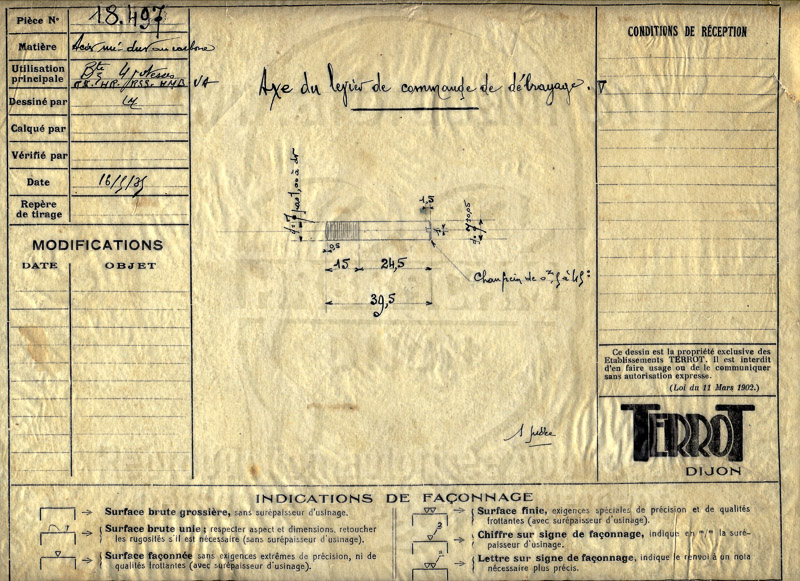 Pièce N° 18.497
Matière Acier mi-dur au carbone
Utilisation
principale Bte 3 Vitesses
HMB VA
Dessiné par
Calqué par
Vérifié par
Date 16/5/35
Repère
de tirage
MODIFICATIONS
DATE OBJET
Axe du levier de commande de débrayage.
1,5
0,5
15 24,5
39,5
Chanfrein de
1 pièce
CONDITIONS DE RÉCEPTION
Ce dessin est la propriété exclusive des
Etablissements TERROT. Il est interdit
d'en faire usage ou de le communiquer
sans autorisation expresse.
(Loi du 11 Mars 1902.)
TERROT
DIJON
INDICATIONS DE FAÇONNAGE
Surface brute grossière, sans surépaisseur d'usinage.
Surface brute unie; respecter aspect et dimensions, retoucher
les rugosités s'il est nécessaire (sans surépaisseur d'usinage).
Surface façonnée sans exigences extrêmes de précision, ni de
qualités frottantes (avec surépaisseur d'usinage).
Surface finie, exigences spéciales de précision et de qualités
frottantes (avec surépaisseur d'usinage).
Chiffre sur signe de façonnage, indique en "/" la suré-
paisseur d'usinage.
Lettre sur signe de façonnage, indique le renvoi à un nota
nécessaire plus précis.